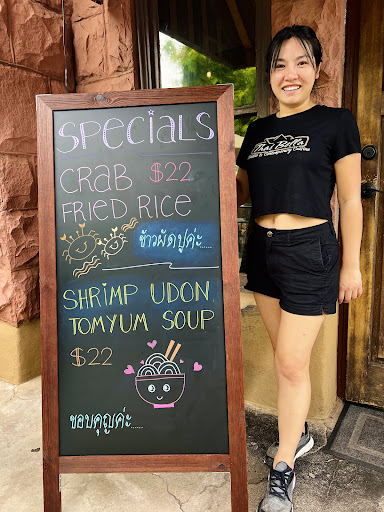 SPECIALS
CRAB $22
FRIED RICE
ข้าวผัดปูค่ะ.....
SHRIMP UDON
TOMYUM SOUP
$22
ขอบคุญค่ะ.....
Thai Bella